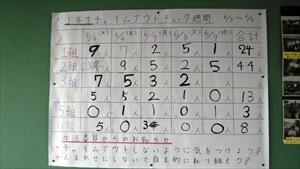 1年生チャイムアウトチェック週間 6/3~6/9
6/3(木) 6/4(金) 6/7(月) 6/8(火) 6/9(水) 合計
1組 9人 7人 2人 5人 1人 24人
2組 9人 5人 2人 5人 44人
3組 7人 5人 3人 2人
組 5人 5人 2人 1人 0人 13人
5組 0人 1人 0人 1人 3人
5人 0人 3人 0人 0人 8人
生活委員からのお知らせ
チャイムアウトしないように気をつけよう!
人まかせにしないで自主的に取り組もう!